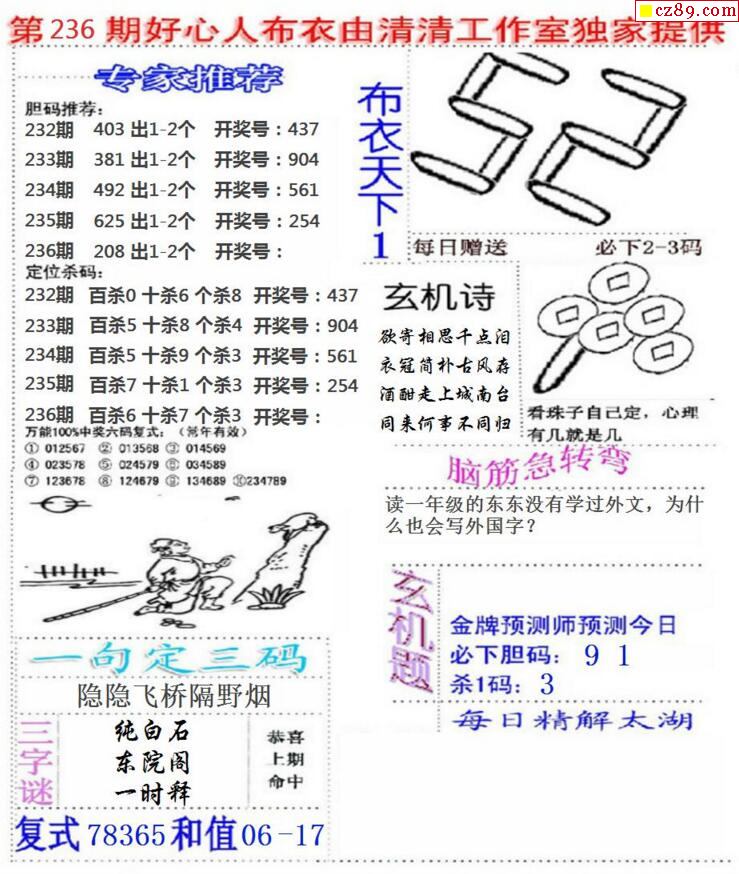 cz89.com
第 236 期好心人布衣由清清工作室独家提供
专家推荐
胆码推荐:
232期 403 出1-2个 开奖号:437
233期 381 出1-2个 开奖号:904
234期 492 出1-2个 开奖号:561
235期 625 出1-2个 开奖号:254
236期 208 出1-2个 开奖号:
定位杀码:
232期 百杀0 十杀6 个杀8 开奖号:437
233期 百杀5 十杀8 个杀4 开奖号:904
234期 百杀5 十杀9 个杀3 开奖号:561
235期 百杀7 十杀1 个杀3 开奖号:254
236期 百杀6 十杀7 个杀3 开奖号:
万能100%中奖六码复式:(常年有效)
① 012567 ② 013568 ③ 014569
④ 023578 ⑤ 024579 ⑥ 034589
⑦ 123678 ⑧ 124679 ⑨ 134689 ⑩234789
一句定三码
隐隐飞桥隔野烟
三字谜
纯白石
东院阁
一时释
恭喜
上期
命中
复式 78365 和值 06-17
布衣天下1
52
每日赠送 必下2-3码
玄机诗
欲寄相思千点泪
衣冠简朴古风存
酒酣走上城南台
同来何事不同归
看珠子自己定，心理
有几就是几
脑筋急转弯
读一年级的东东没有学过外文，为什
么也会写外国字?
玄机题
金牌预测师预测今日
必下胆码: 9 1
杀1码: 3
每日精解太湖